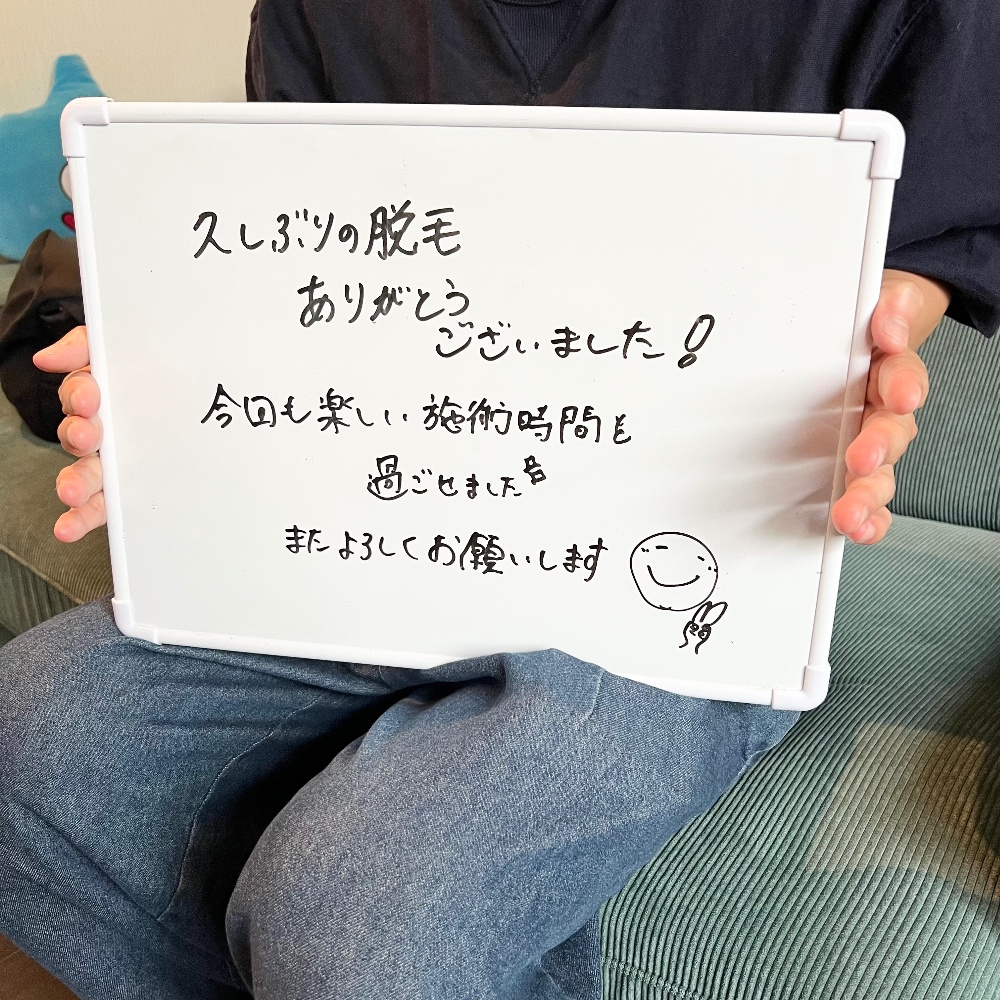 久しぶりの脱毛
ありがとう
ございました!
今回も楽しい施術時間を
過ごせました
またよろしくお願いします